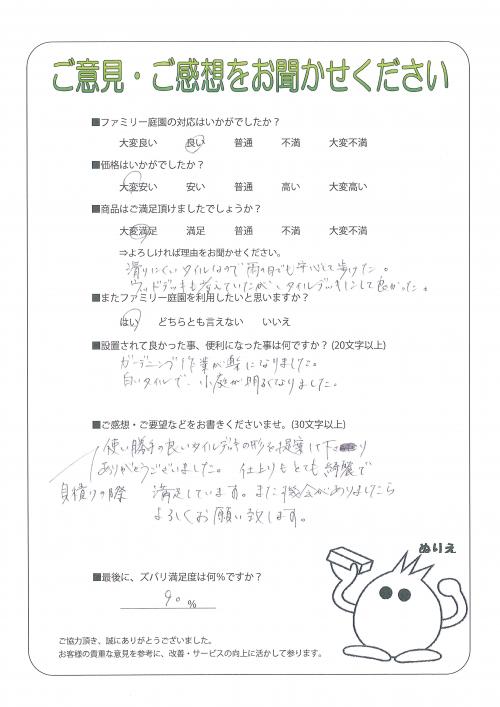 ご意見・ご感想をお聞かせください
■ファミリー庭園の対応はいかがでしたか?
大変良い 良い 普通 不満 大変不満
■価格はいかがでしたか?
大変安い 安い 普通 高い 大変高い
■商品はご満足頂けましたでしょうか?
大変満足 満足 普通 不満 大変不満
⇒よろしければ理由をお聞かせください。
滑りにくいタイルなので雨の日でも安心して歩けた。
ウッドデッキも考えていたが、タイルデッキにして良かった。
■またファミリー庭園を利用したいと思いますか?
はい どちらとも言えない いいえ
■設置されて良かった事、便利になった事は何ですか?(20文字以上)
ガーデニング作業が楽になりました。
白いタイルで、小庭が明るくなりました。
■ご感想・ご要望などをお書きくださいませ。(30文字以上)
使い勝手の良いタイルデッキの形を提案して下さり
ありがとうございました。 仕上りもとても綺麗で
見積りの際 満足しています。また機会がありましたら
よろしくお願い致します。
ぬりえ
■最後に、ズバリ満足度は何%ですか?
90 %
ご協力頂き、誠にありがとうございました。
お客様の貴重な意見を参考に、改善・サービスの向上に活かして参ります。